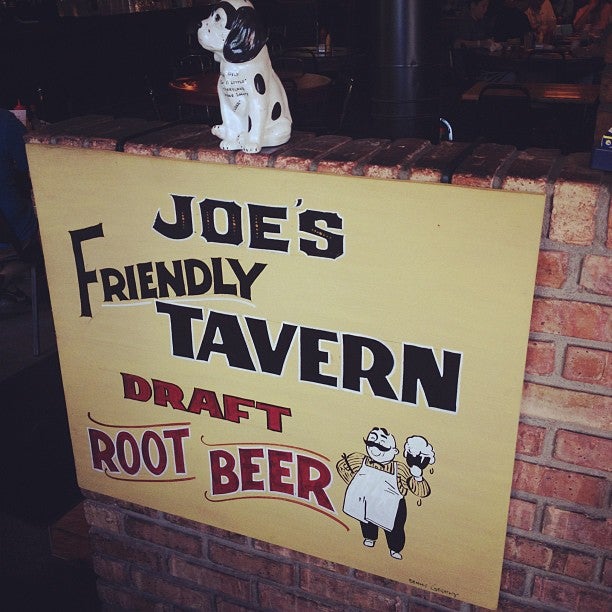 JOE'S
FRIENDLY
TAVERN
DRAFT
ROOT BEER